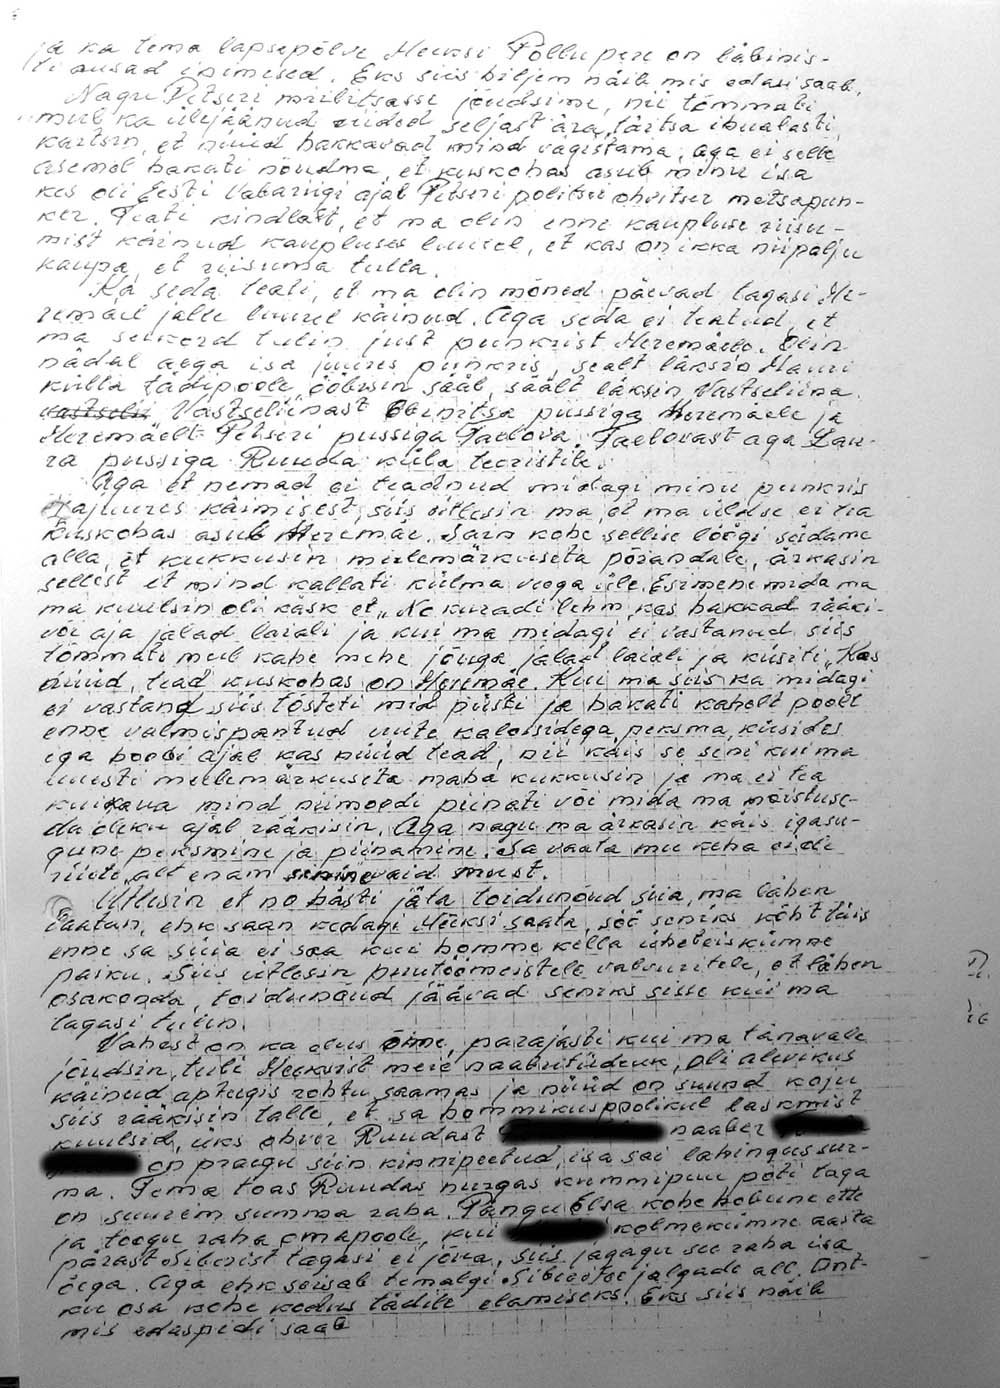 ja ka tema lapsepõlve Heiksi Põllu pere on läbinis-
ti ausad inimesed. Eks siis hiljem näib mis edasi saab.
Nagu Petseri miilitsasse jõudsime, nii tõmmati
mul ka ülejäänud riided seljast ära, täitsa ihualasti,
kartsin, et nüüd hakkavad mind vägistama, aga ei selle
asemel hakati nõudma, et kuskohas asub minu isa
kes oli Eesti Vabariigi ajal Petseri politsei ohvitser metsapun-
ker. Teati kindlalt, et ma olin enne kaupluse riisu-
mist käinud kaupluses luurel, et kas on ikka niipalju
kaupa, et riisuma tulla.
Ka seda teati, et ma olin mõned päevad tagasi Me-
remäel jälle luurel käinud. Aga seda ei teatud, et
ma seekord tulin just punkrist Meremäele. Olin
nädal aega isa juures punkris, sealt läksin
külla tädipoole, ööbisin sääl, säält läksin Vastseliina.
Vastseliinast Obinitsa pussiga Meremäele ja
Meremäelt Petseri pussiga Taelova. Taelovast aga Lau-
ra pussiga Ruunda küla teeristile.
Aga et nemad ei teadnud midagi minu punkris
isajuures käimisest, siis ütlesin ma, et ma üldse ei tea
kuskohas asub Meremäe. Sain kohe sellise löögi südame
alla, et kukkusin meelemärkuseta põrandale, ärkasin
sellest et mind kallati külma veega üle. Esimene mida ma
ma kuulsin oli käsk et „No kuradi lehm, kas hakkad rääki-
või aja jalad laiali ja kui ma midagi ei vastanud siis
tõmmati mul kahe mehe jõuga jalad laiali ja küsiti „Kas
nüüd, tead kuskohas on Meremäe. Kui ma siis ka midagi
ei vastand, siis tõsteti mid püsti ja hakati kahelt poolt
enne valmispantud uute kalossidega peksma, küsides
iga hoobi ajal kas nüüd tead, nii käis se seni kui ma
uuesti meelemärkuseta maha kukkusin ja ma ei tea
kuikaua mind niimoodi piinati või mida ma mõistuse-
da oleku ajal rääkisin. Aga nagu ma ärkasin käis igasu-
gune peksmine ja piinamine. Sa vaata mu keha ei ole
riiete alt enam sinine vaid must.
Ütlesin et no hästi jäta toidunõud siia, ma lähen
vaatan, ehk saan kedagi Heiksi saata, söö seniks kõht täis
enne sa süüa ei saa kui homme kella üheteistkümne
paiku. Siis ütlesin puutöömeistele valvuritele, et lähen
osakonda, toidunõud jäävad seniks sisse kui ma
tagasi tulin.
Vahest on ka olus õnne, parajasti kui ma tänavale
jõudsin, tuli Heiksist meie naabritüdruk, oli alevikus
käinud apteegis rohtu saamas ja nüüd on suund koju
siis rääkisin talle, et sa hommikupoolikul laskmist
kuulsid, üks ohver Ruudast naaber
on praegu siin kinnipeetud, isa sai lahingus sur-
ma. Tema toas Ruudas nurgas kummipuu poti taga
on suurem summa raha. Pangu Elsa kohe hobune ette
ja toogu raha omapoole, kui kolmekümne aasta
pärast Siberist tagasi ei jõua, siis jagagu see raha isa
õega. Aga ehk seisab temalgi Siberitee jalgade all. Ant-
ku osa kohe kodus tädile elamiseks. Eks siis näib
mis edaspidi saab